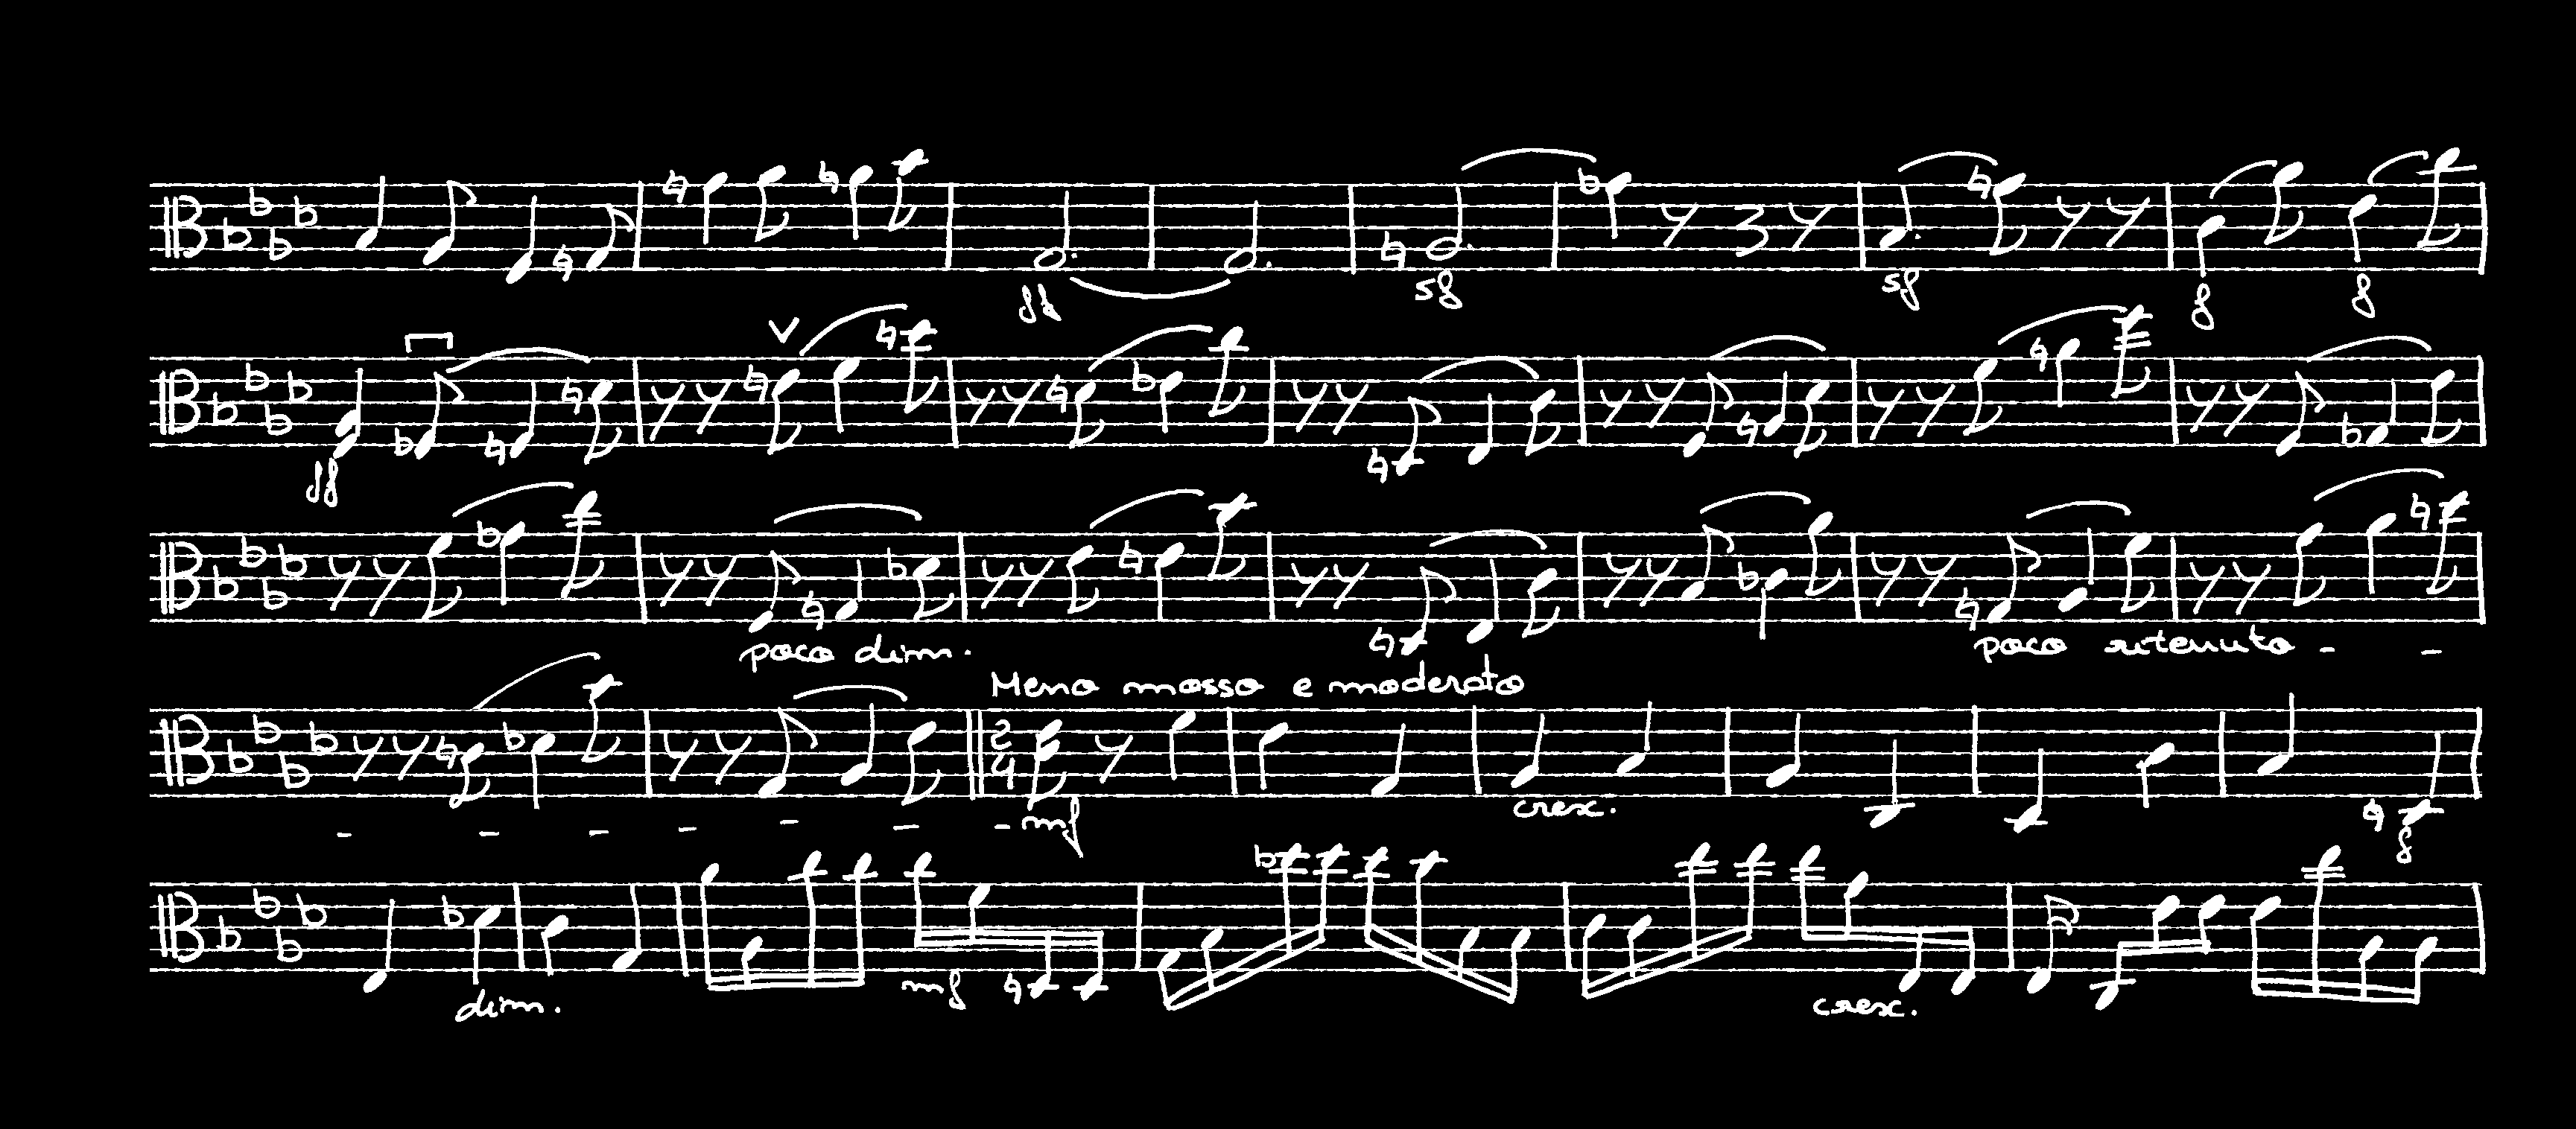 ff sf sf f f
ff
poco dim. poco ritenuto - -
Meno mosso e moderato
2/4 cresc.
- - - - - - - mf f
dim. mf cresc.